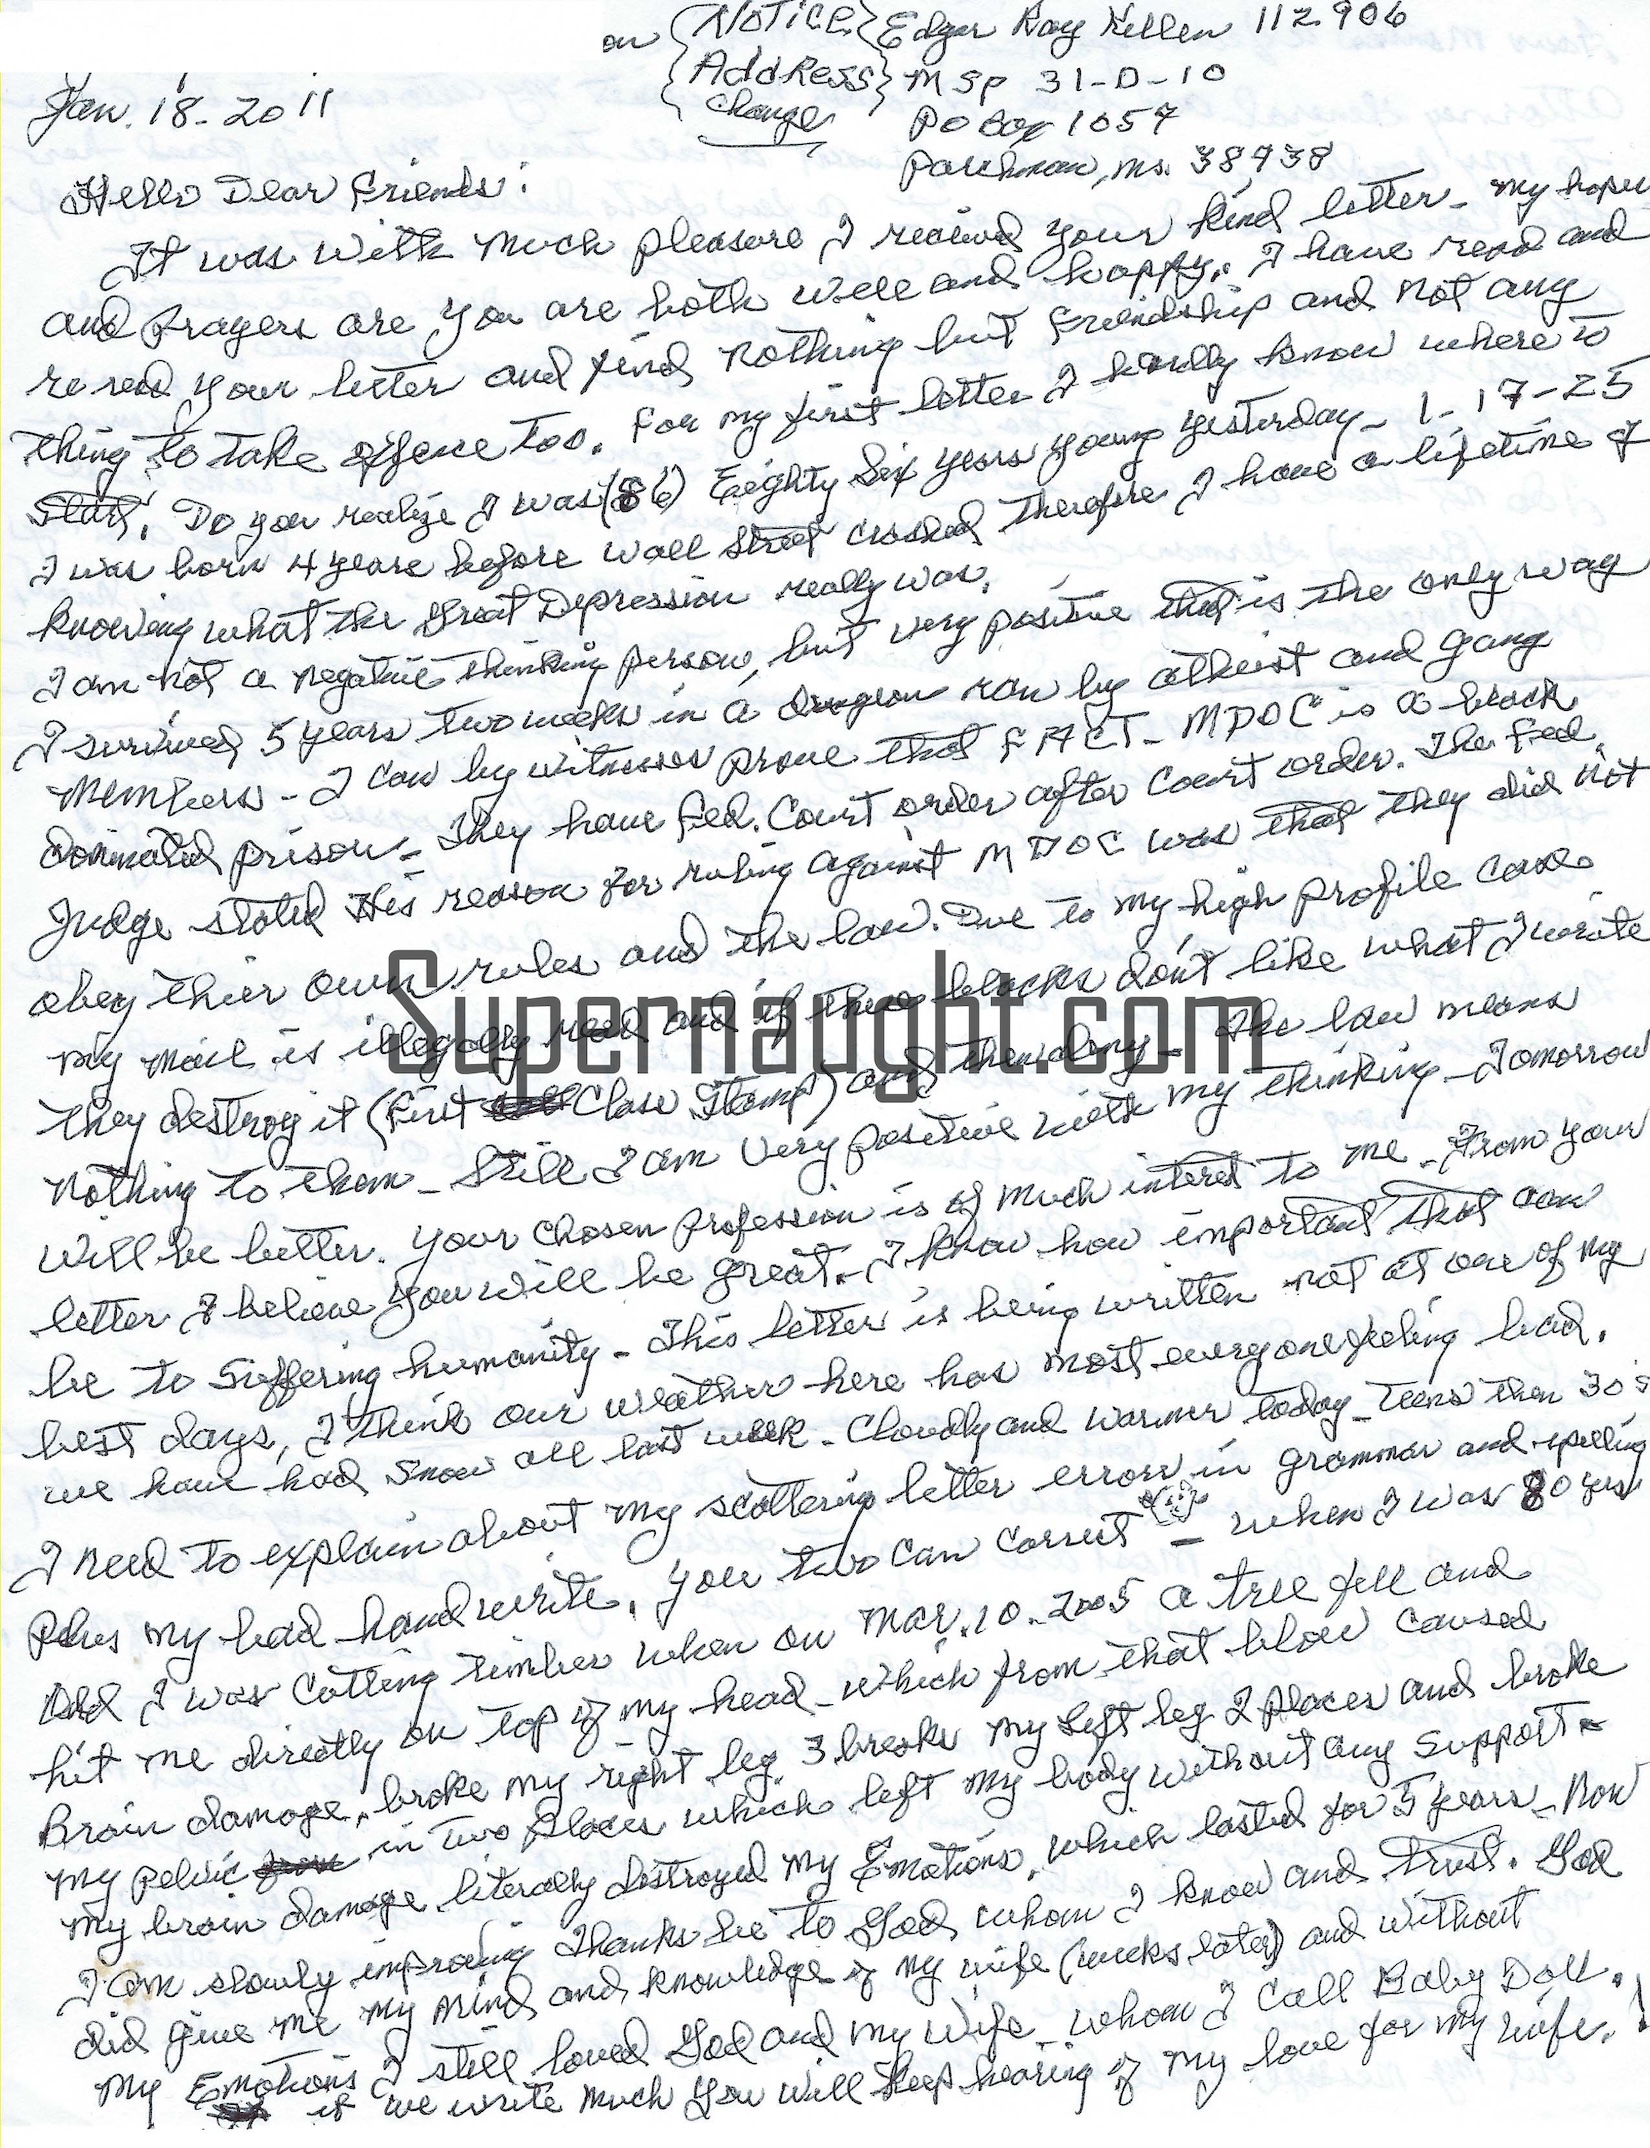 on { NOTICE } Edgar Ray Killen 112906
{ Address } MSP 31-D-10
Change PO Box 1057
Jan. 18-2011
Parchman, Ms. 38738
Hello Dear Friends:
It was with much pleasure I recived your kind letter - my hopes
and prayers are you are both well and happy. I have read and
re read your letter and find nothing but friendship and not any
thing to take offence too. For my first letter I hardly know where to
start. Do you realize I was (86) Eighty Six years young yesterday - 1-17-25
I was born 4 years before wall street crashed therefore I have a lifetime of
knowing what the Great Depression really was.
I am not a negative thinking person, but very positive that is the only way
I survived 5 years two weeks in a dungeon ran by atheist and gang
members - I can by witnesses prove that FACT - MDOC is a black
dominated prison - They have Fed. Court order after Court order. The Fed.
Judge stated His reason for ruling against MDOC was that they did not
obey thier own rules and the law. Due to my high profile case
my mail is illegally read and if thes blacks don't like what I write
they destroy it (First Class Stamp) and then deny - The law means
nothing to them - Still I am very positive with my thinking - Tomorrow
will be better. Your chosen profession is of much interest to me - From your
letter I believe you will be great. - I know how important that can
be to Siffering humanity - This letter is being written not at one of my
best days, I think our weather here has most everyone feeling bad.
we have had snow all last week - Cloudly and warmer today - teens then 30s
I need to explain about my scattering letter errors in grammar and spelling
Plus my bad hand write. You two can correct - when I was 80 yrs
Old I was Cutting timber when on Mar. 10. 2005 a tree fell and
hit me directly on top of my head - which from that blow caused
Brain damage, broke my right leg 3 breaks my left leg 2 places and broke
my pelvic in two places which left my body without any support -
my brain damage literally distroyed my Emotions, which lasted for 5 years - Now
I am slowly improving Thanks be to God whom I know and trust. God
did give me my mind and knowledge of my wife (weeks later) and without
my Emotions I still loved God and my wife - whom I call Baby Doll.
if we write much you will keep hearing of my love for my wife.!
Supernaught.com